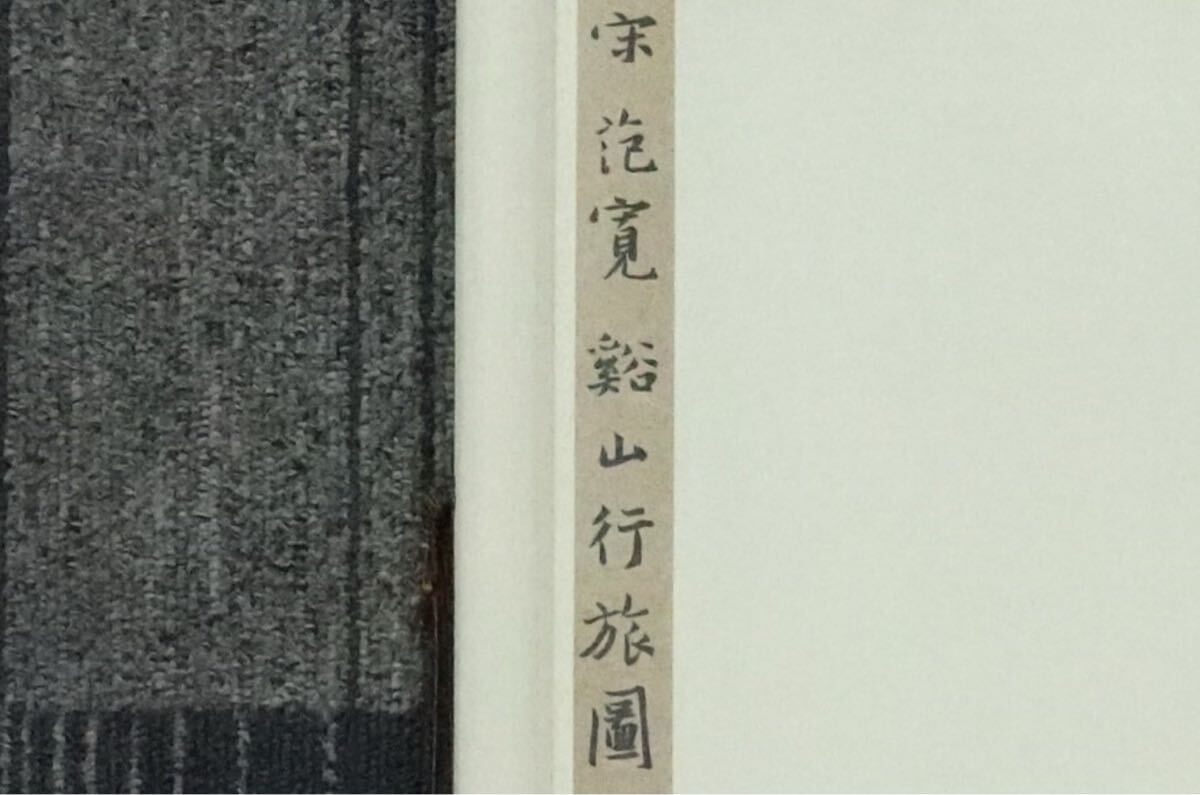 宋 范寬 谿山行旅圖